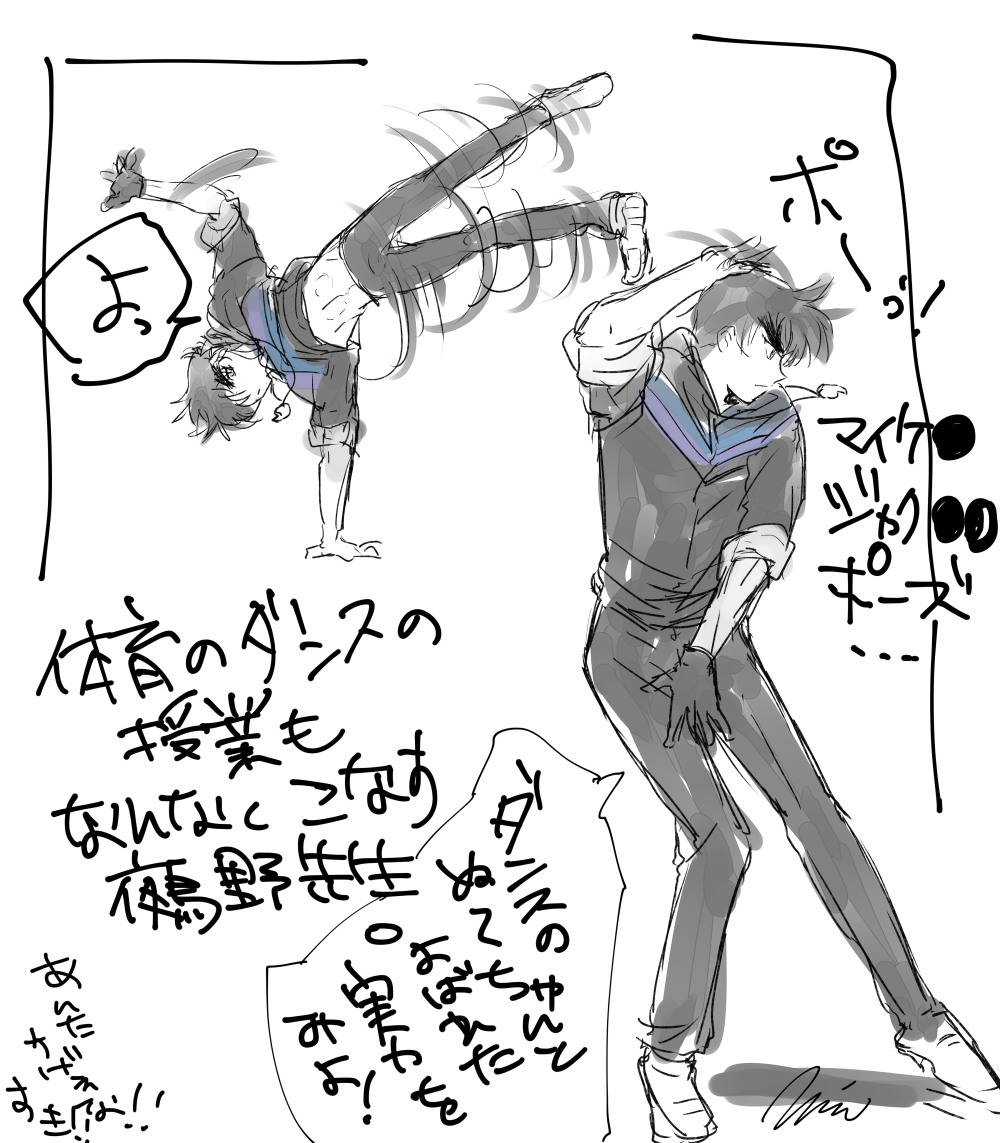 よっ
ポーッ!
マイケ●
ジャク●●
ポーズ
…
体育のダンスの
授業も
なんなくこなす
鵺野先生
ダンスの
ぬ〜ちゃんと
よばれた
実力を
みよ!
あんた
すげぇな!!
すき!!